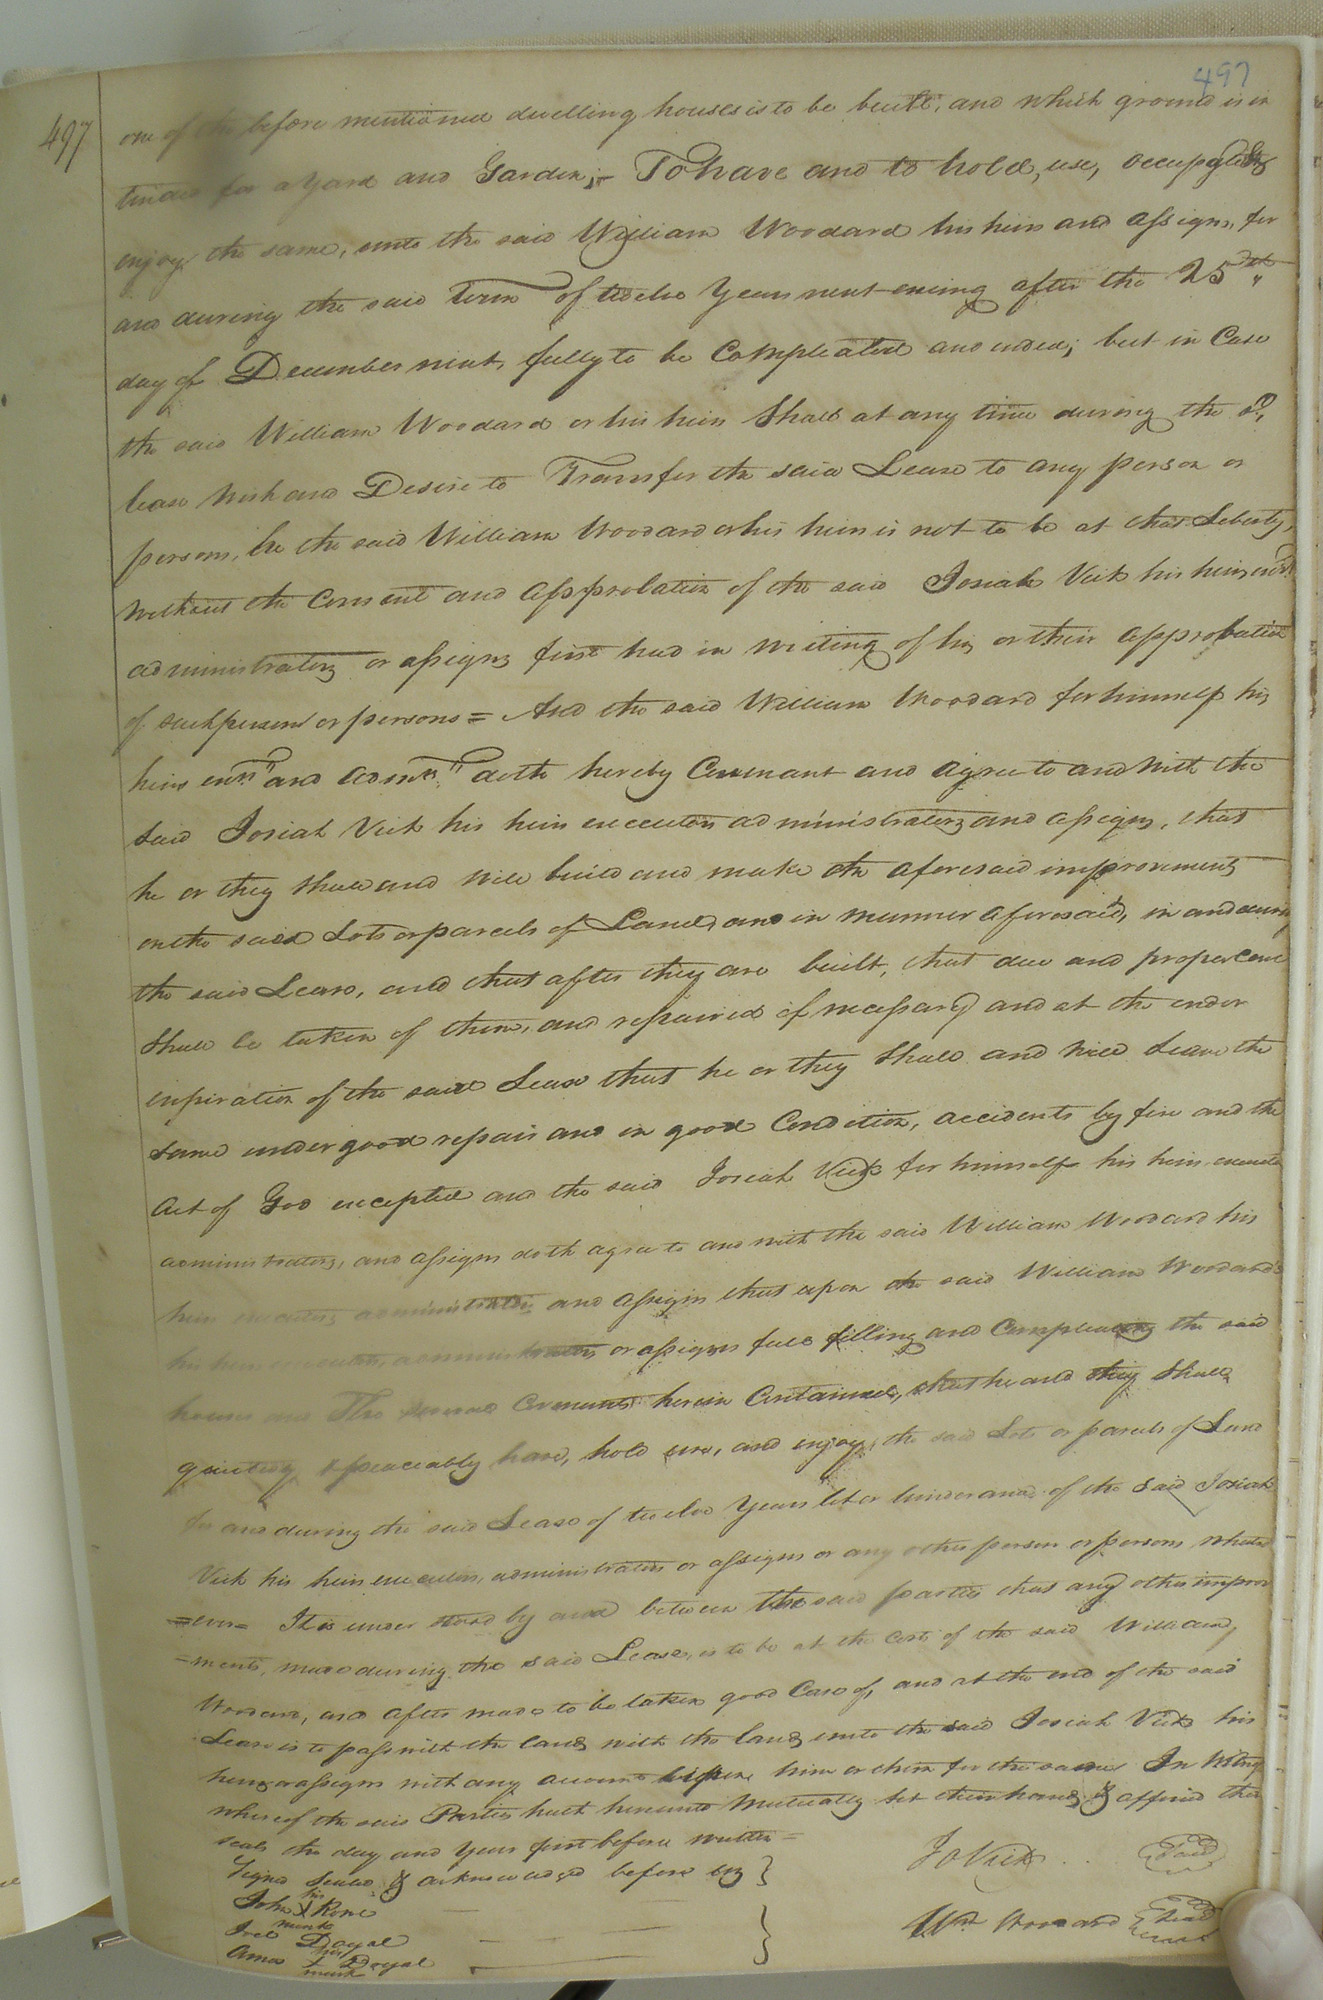 497
497
one of the before mentioned dwelling houses is to be built, and which ground is in
tended for a yard and Garden; - To have and to hold, use, occupy &
enjoy the same, unto the said William Woodard his heirs and assigns, for
and during the said Term of twelve Years next ensuing after the 25th
day of December next, fully to be Compleated and ended; but in Case
the said William Woodard or his heirs Shall at any time during the sd.
lease wish and Desire to Transfer the said Lease to any person or
persons, he the said William Woodard or his heirs is not to be at that Liberty,
without the Consent and Approbation of the said Josiah Vick his heirs, exrs.
administrators or assigns first had in writing of his or their approbation
of such person or persons = And the said William Woodard for himself his
heirs exrs. and admrs. doth hereby Covenant and agree to and with the
said Josiah Vick his heirs executors administrators and assigns, that
he or they Shall and will build and make the aforesaid improvements
on the said Lots or parcels of Land, and in manner aforesaid, in and during
the said Lease, and that after they are built, that due and proper care
Shall be taken of them, and repaired if necessary and at the end or
expiration of the said Lease that he or they Shall and will Leave the
same under good repair and in good Condition, accidents by fire and the
Act of God excepted and the said Josiah Vick for himself his heirs executors
administrators, and assigns doth agree to and with the said William Woodard his
heirs executors administrators and assigns that upon the said William Woodard
his heirs executors administrators or assigns full filling and Compleating the said
houses and The several Covenants herein Contained, that he and they Shall
quietly & peaceably have, hold use, and enjoy, the said Lots or parcels of Land
for and during the said Lease of twelve Years let or hinderance of the said Josiah
Vick his heirs executors, administrators or assigns or any other person or persons whatso
=ever= It is under stood by and between the said parties that any other improve
-ments, made during the said Lease, is to be at the Cost of the said William
Woodard, and after made to be taken good Care of, and at the end of the said
Lease is to pass with the land, with the land, unto the said Josiah Vick his
heirs or assigns with any account him or them for the same In Witness
whereof the said Parties hath hereunto Mutually set their hands & affixed their
seals the day and year first before written =
Signed Sealed & acknowledged before us }
John his X mark Rone
Joel Doyal
Amos his X mark Doyal
Jo Vick Seal
Wm Woodard Seal